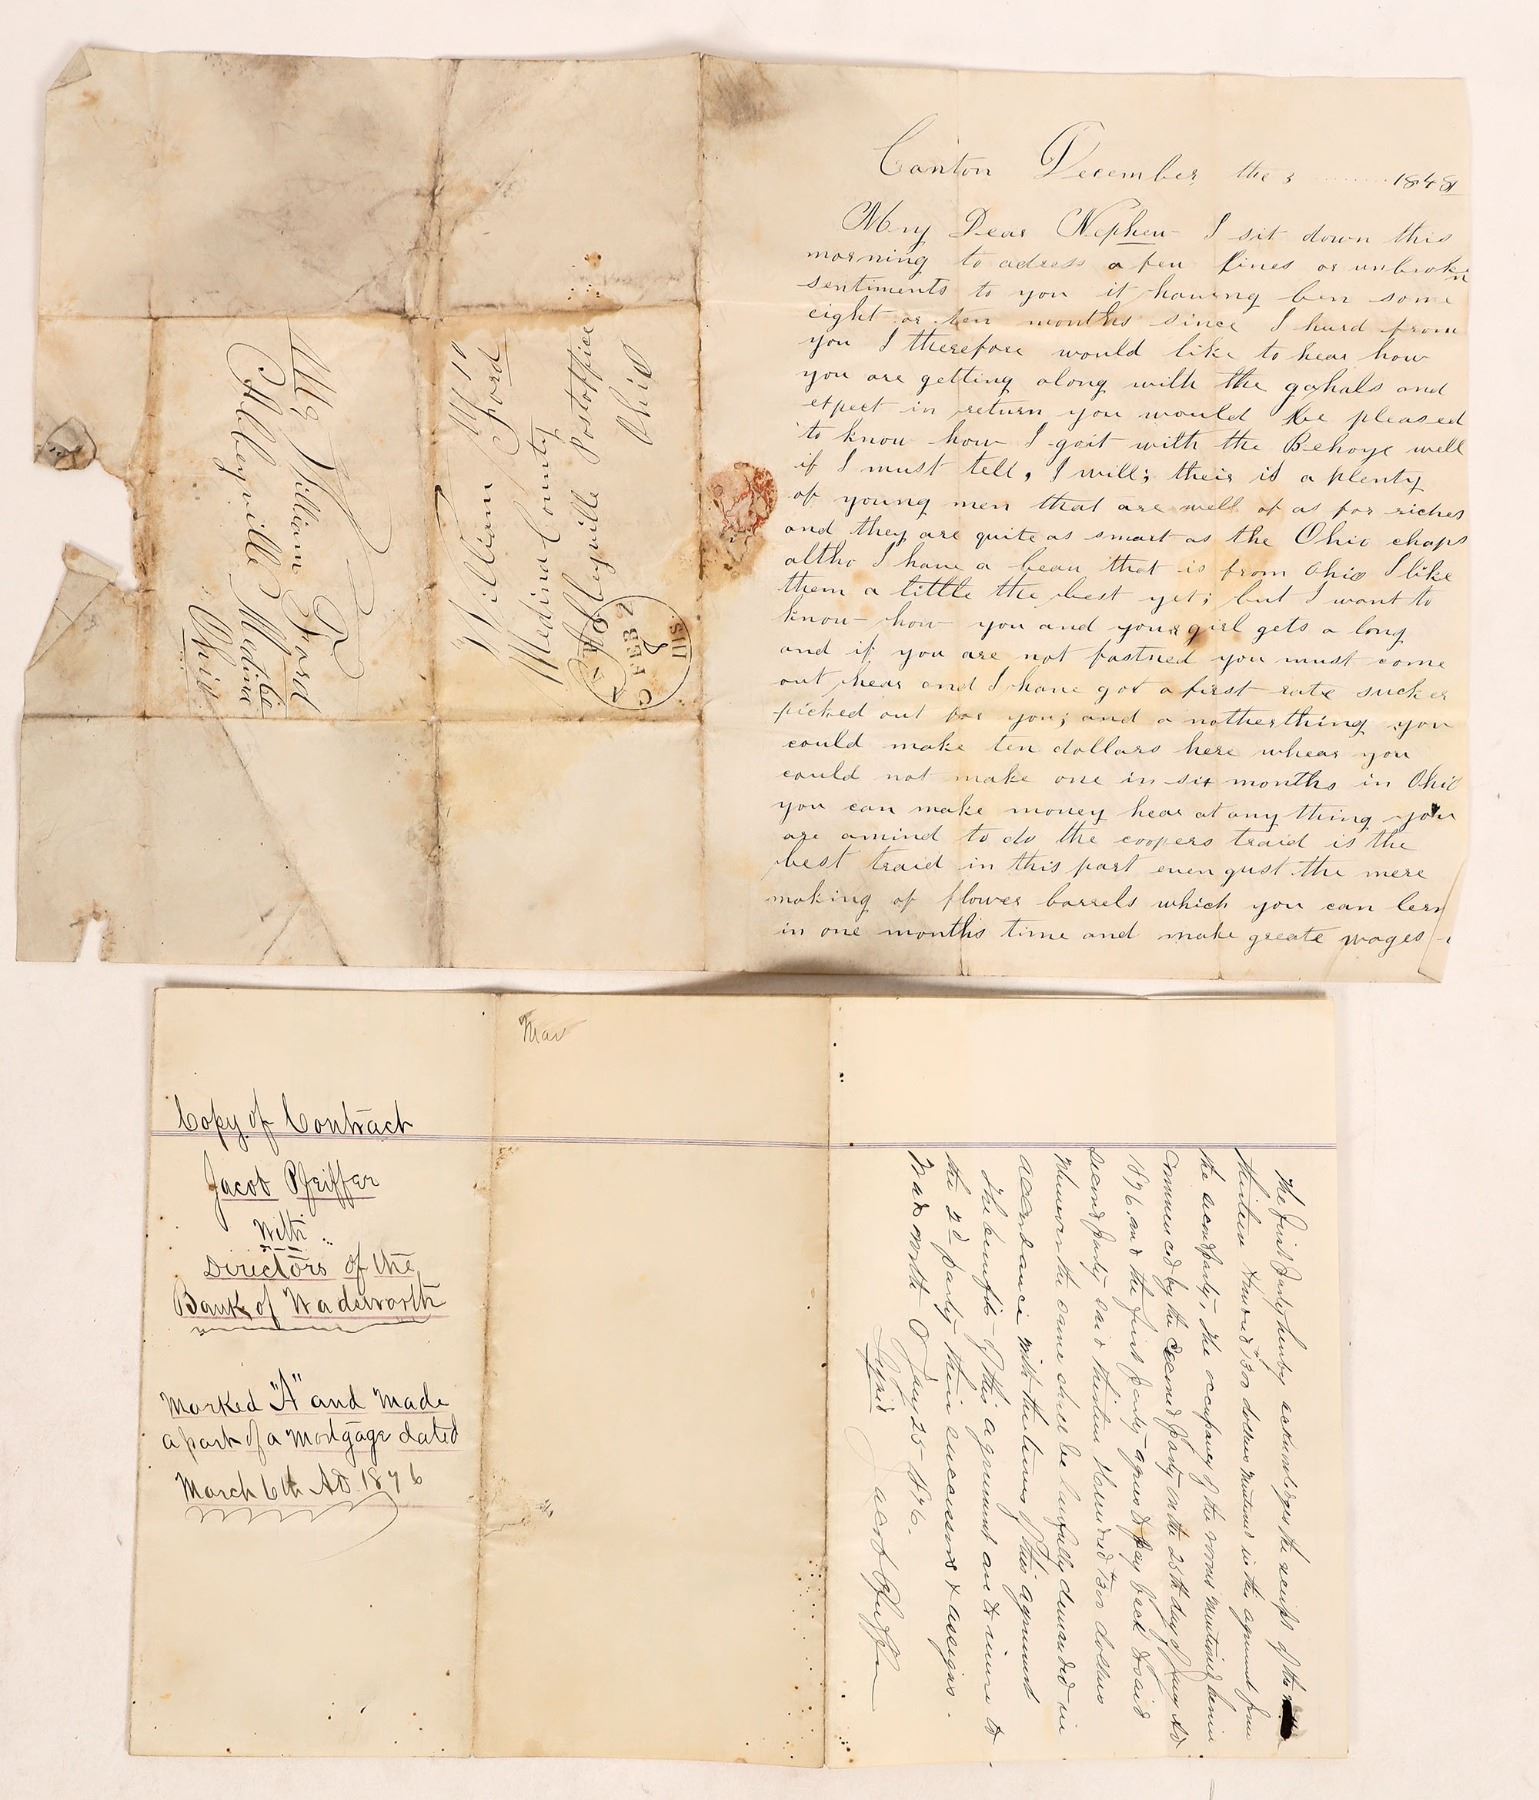 Canton December the 3 1848
My Dear Nephew I sit down this
morning to adress a few lines or unbroken
sentiments to you it having ben some
eight or ten months since I hurd from
you I therefore would like to hear how
you are getting along with the gahals and
expect in return you would be pleased
to know how I goit with the Behoys well
if I must tell, I will; their is a plenty
of young men that are well of as for riches
and they are quite as smart as the Ohio chaps
altho I have a beau that is from Ohio I like
them a little the best yet; but I want to
know how you and your girl gets a long
and if you are not fastned you must come
out hear and I have got a first rate sucker
picked out for you; and a nother thing you
could make ten dollars here whear you
could not make one in six months in Ohio
you can make money hear at any thing you
are amind to do the coopers traid is the
best traid in this part even gust the mere
making of flower barrels which you can lern
in one months time and make greate wages
Mr William Ford
Abbeyville Medina
Ohio
10
William Ford
Medina County
Abbeyville Postoffice
Ohio
CANTON
FEB 2
ILLS
Mav
Copy of Contract
Jacob Pfeiffer
With
Directors of the
Bank of Wadsworth
Marked "A" and Made
a part of a Mortgage dated
March 6th AD 1876
The first party hereby acknowledges the receipt of the
thirteen Hundred dollars mentioned in this agreement from
the second party, the occupancy of the rooms mentioned herein
commenced by the Second party on the 25th day of Jany AD
1876. and the first party agrees to pay back to said
second party said thirteen Hundred dollars
whenever the same shall be lawfully demanded in
accordance with the terms of this agreement
The benefits of this agreement are to inure to
the 2d party their successors & assigns.
Wadsworth O Jany 25 - 1876.
Signed Jacob Pfeiffer